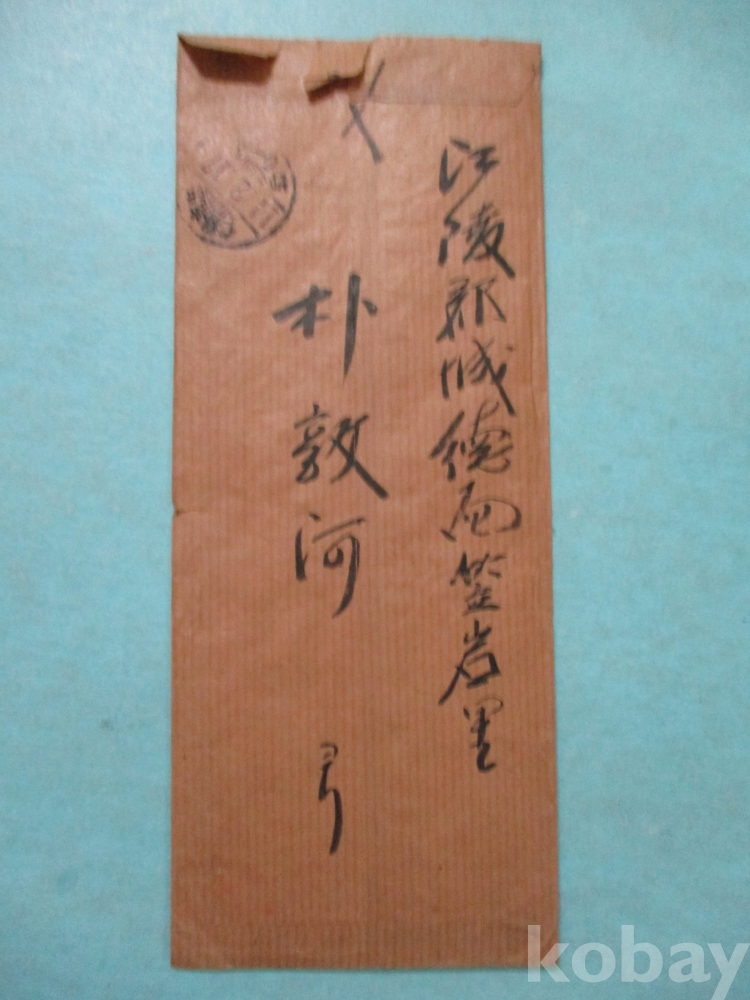 江陵郡城德面笠岩里
朴敦河
kobay